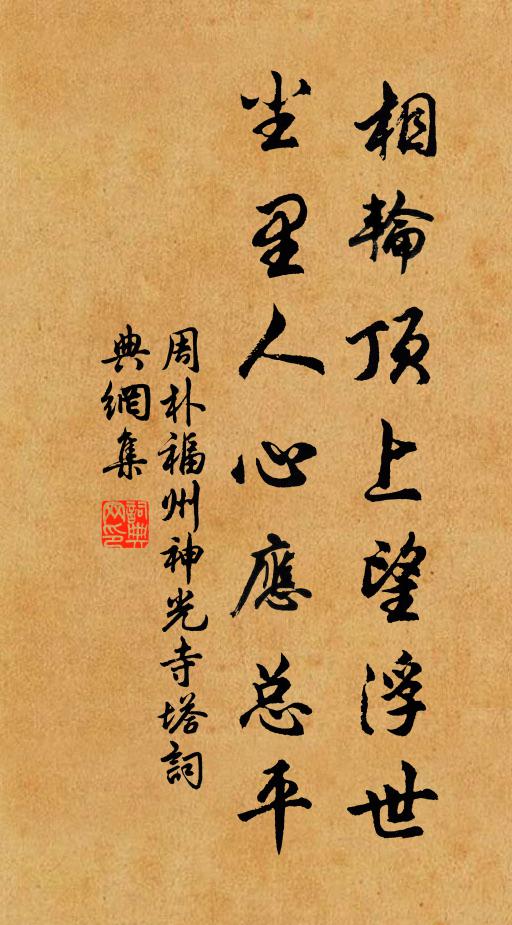 相輪顶上望浮世
尘里人心應总平
周朴福州神光寺塔詞
典網集
詞典網印